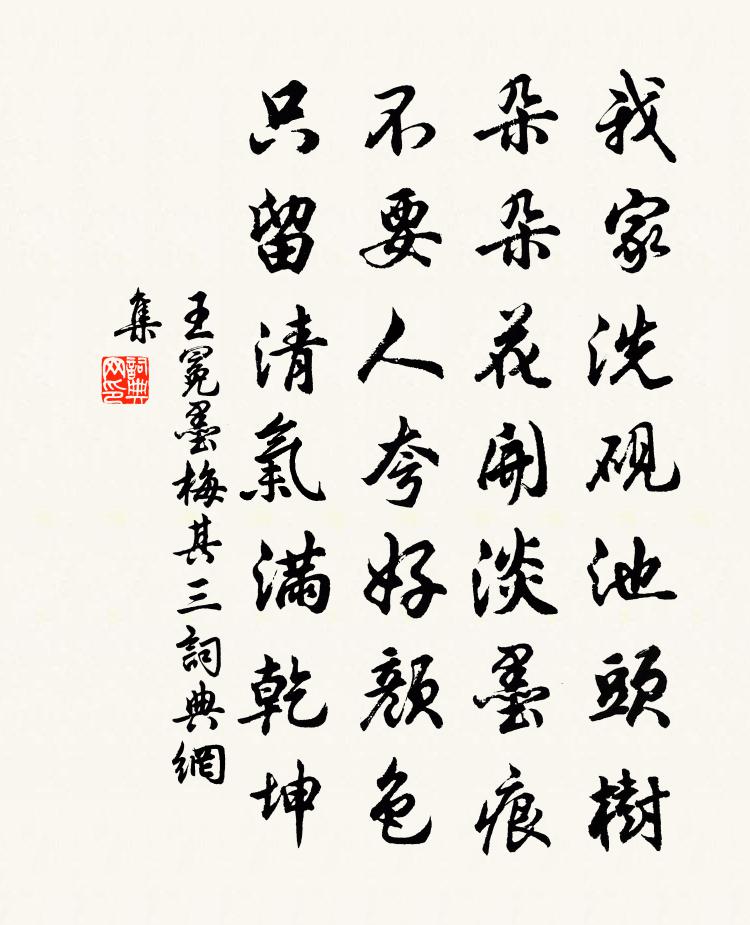 我家洗硯池頭樹
朵朵花開淡墨痕
不要人夸好顏色
只留清氣滿乾坤
王冕墨梅其三詞典網
集
詞典
网印